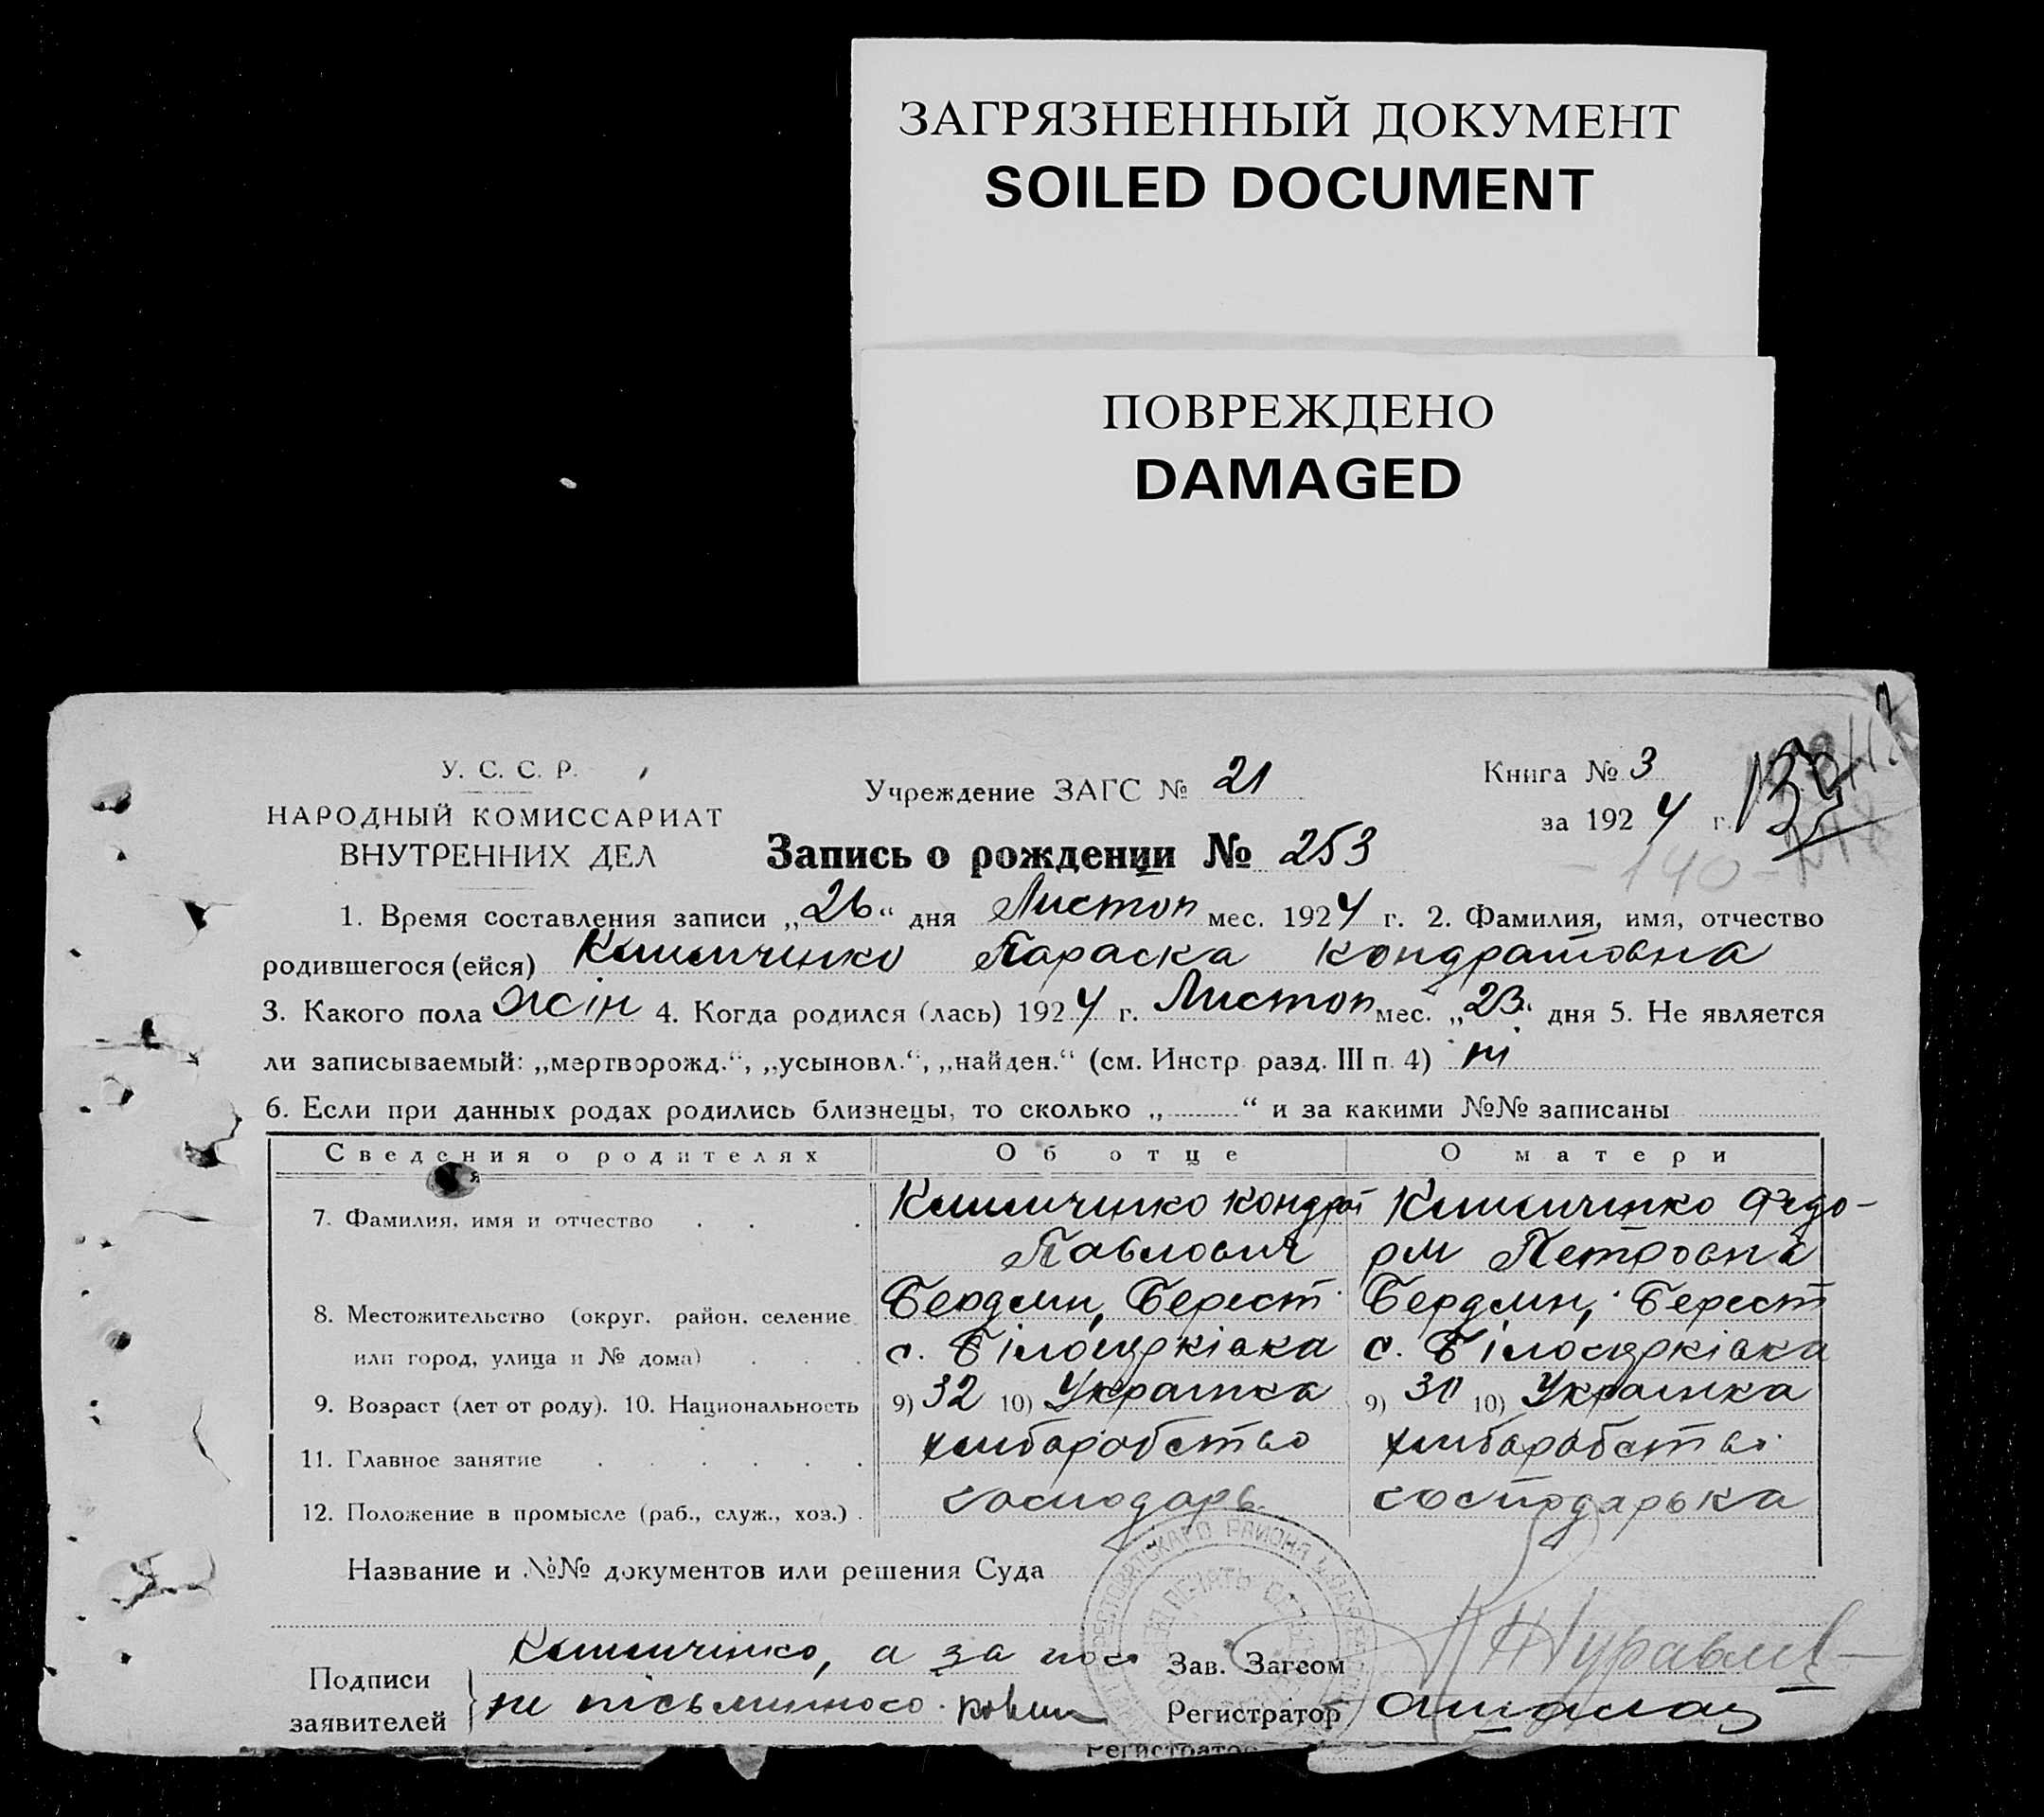 ЗАГРЯЗНЕННЫЙ ДОКУМЕНТ
SOILED DOCUMENT
ПОВРЕЖДЕНО
DAMAGED
У. С. С. Р.
НАРОДНЫЙ КОМИССАРИАТ
ВНУТРЕННИХ ДЕЛ
Учреждение ЗАГС № 21
Книга № 3
за 1924 г.
Запись о рождении № 253
- 140 -
1. Время составления записи „26“ дня Листоп мес. 1924 г. 2. Фамилия, имя, отчество
родившегося (ейся) Параска Кондратовна
3. Какого пола Жін 4. Когда родился (лась) 1924 г. Листоп мес. „23“ дня 5. Не является
ли записываемый: „мертворожд.“, „усыновл.“, „найден.“ (см. Инстр. разд. III п. 4) ні
6. Если при данных родах родились близнецы, то сколько „ “ и за какими №№ записаны
Сведения о родителях Об отце О матери
7. Фамилия, имя и отчество Кондрат Федо-
Павлович ра Петровна
8. Местожительство (округ, район, селение Бердян, Берест. Бердян, Берест
или город, улица и № дома) с. Білоцерківка с. Білоцерківка
9. Возраст (лет от роду). 10. Национальность 9) 32 10) Українка 9) 10) Українка
11. Главное занятие хліборобство хліборобство
12. Положение в промысле (раб., служ., хоз.) господарь господарька
Название и №№ документов или решения Суда
Подписи
заявителей
а за
не пісьменного
Зав. Загсом
Регистратор
Регистратор